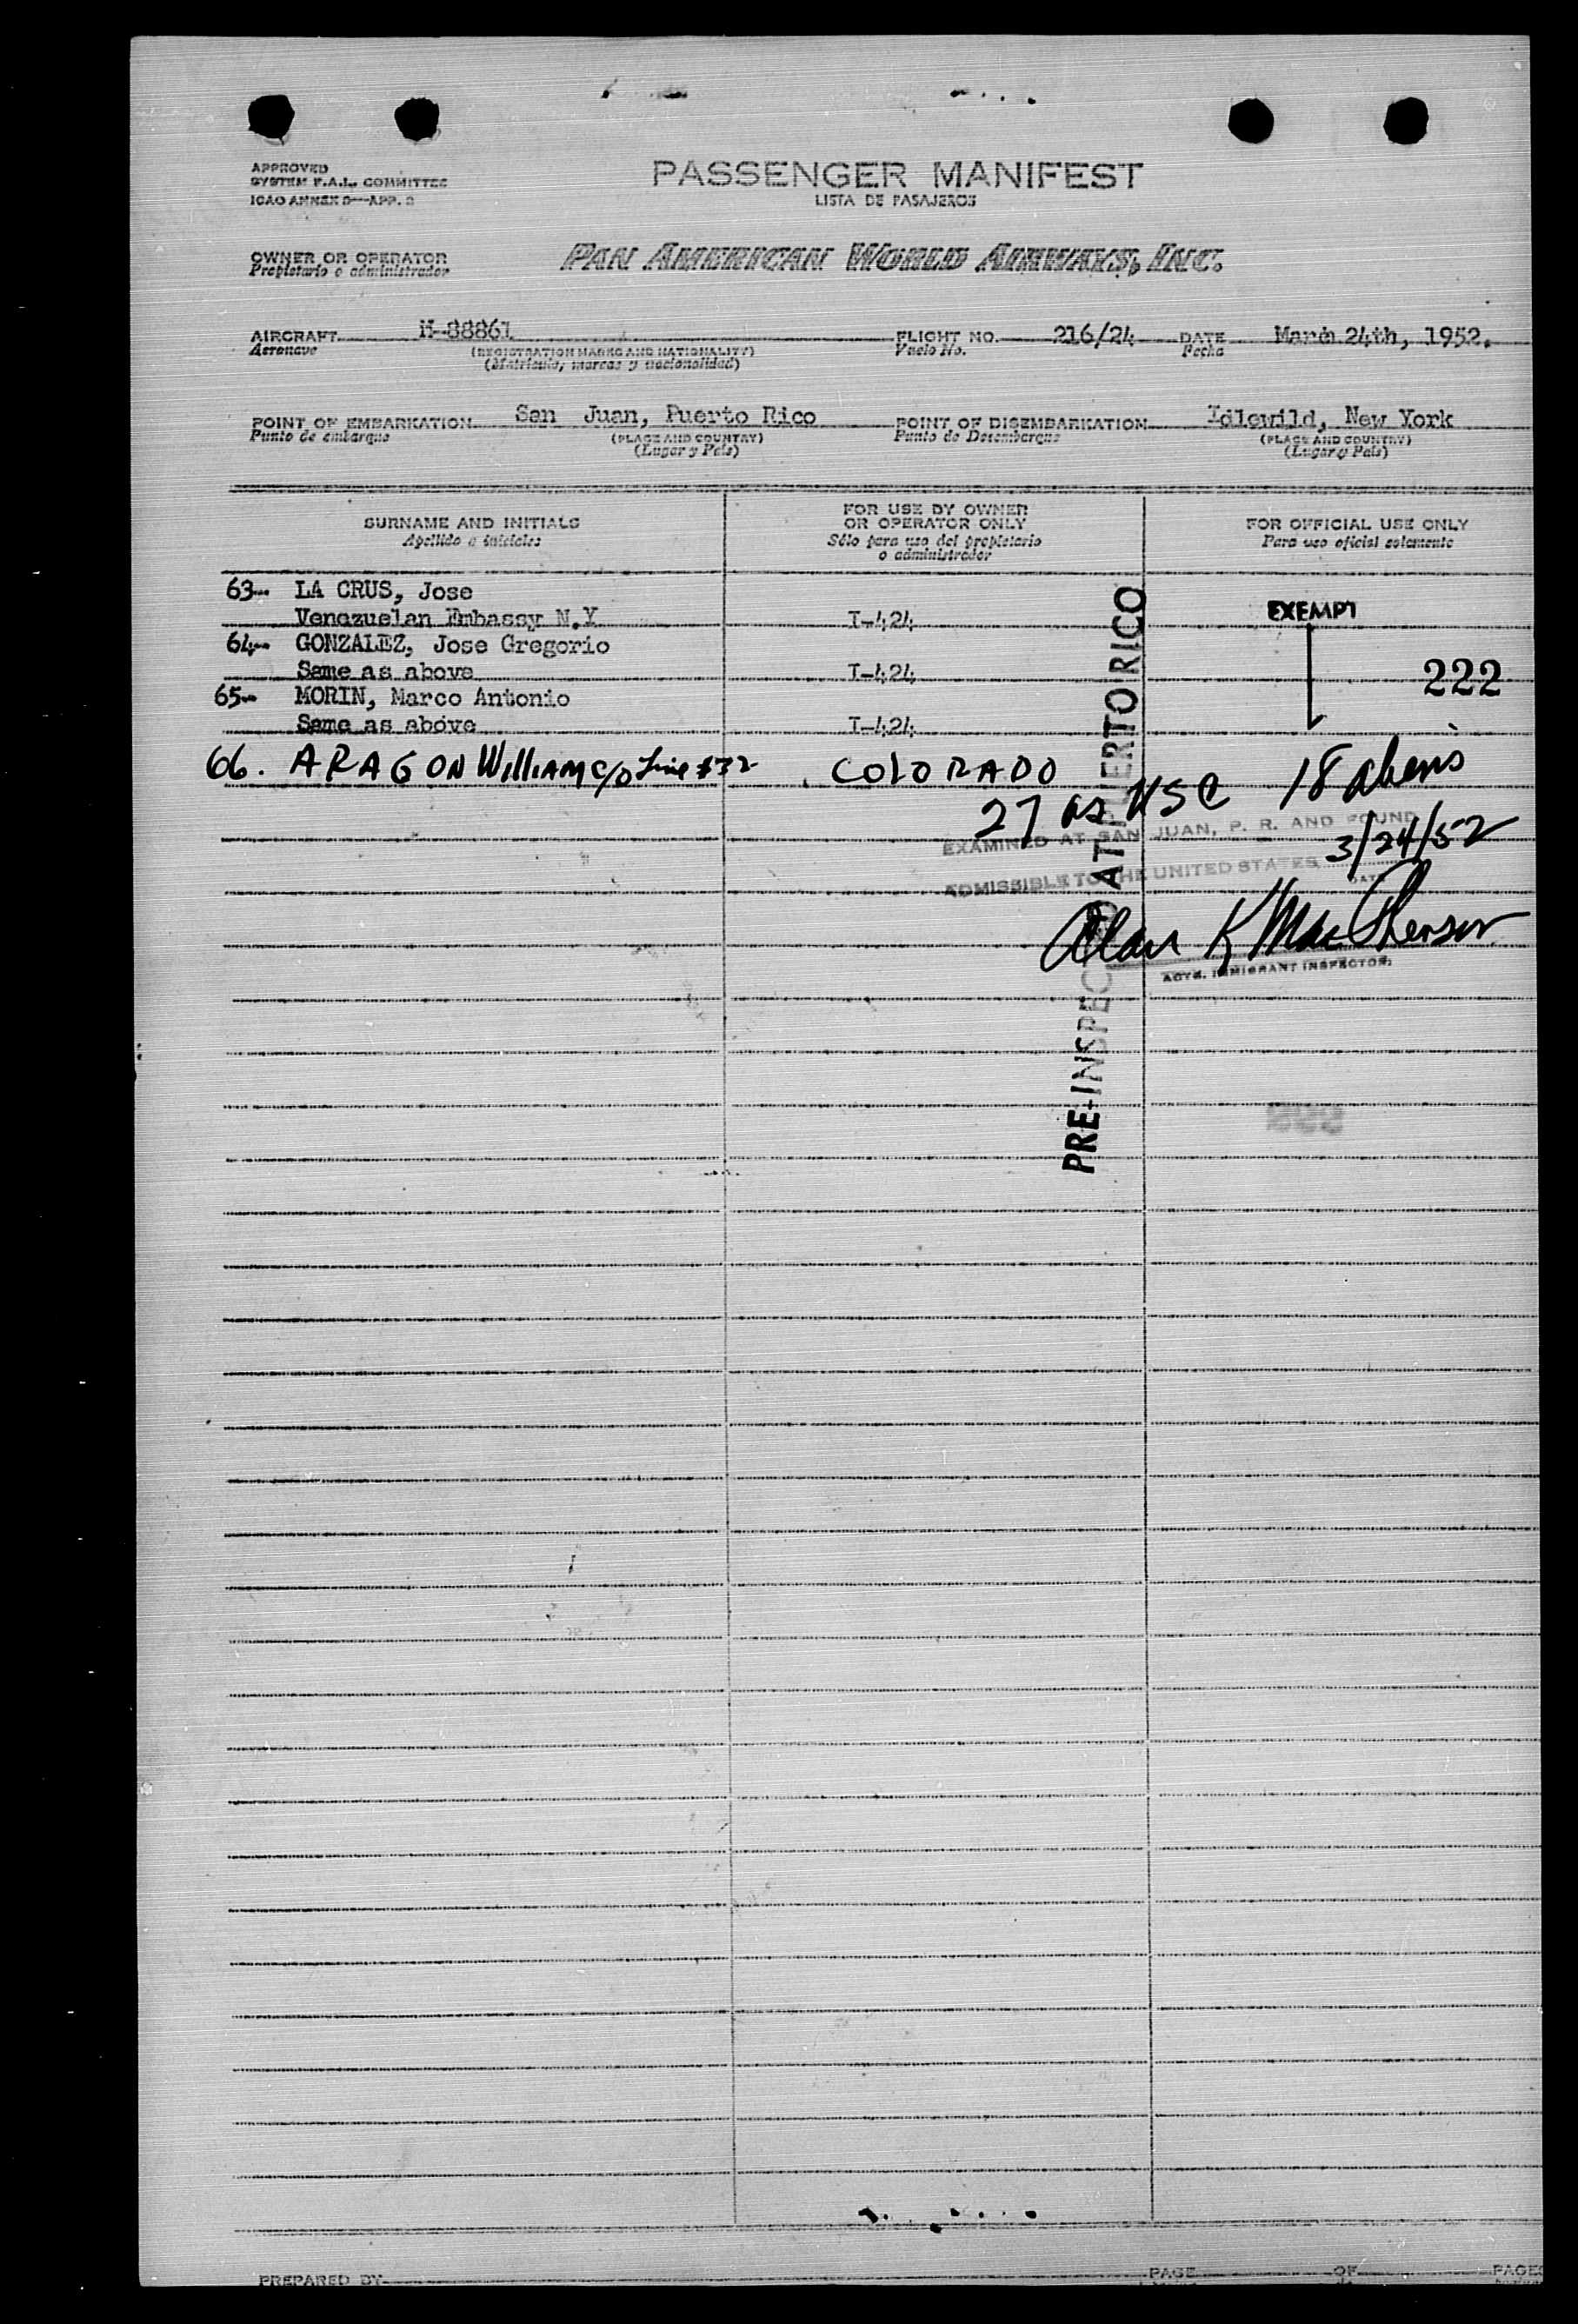 APPROVED
SYSTEM F.A.L. COMMITTEE
ICAO ANNEX 9—APP. 3
PASSENGER MANIFEST
LISTA DE PASAJEROS
OWNER OR OPERATOR
Propietario o administrador
PAN AMERICAN WORLD AIRWAYS, INC.
AIRCRAFT N-88861 FLIGHT NO. 216/24 DATE March 24th, 1952.
Aeronave (REGISTRATION MARKS AND NATIONALITY) Vuelo No. Fecha
(Matrícula, marcas y nacionalidad)
POINT OF EMBARKATION San Juan, Puerto Rico POINT OF DISEMBARKATION Idlewild, New York
Punto de embarque (PLACE AND COUNTRY) Punto de Desembarque (PLACE AND COUNTRY)
(Lugar y País) (Lugar y País)
SURNAME AND INITIALS
Apellido e iniciales
FOR USE BY OWNER
OR OPERATOR ONLY
Sólo para uso del propietario
o administrador
FOR OFFICIAL USE ONLY
Para uso oficial solamente
63- LA CRUS, Jose
Venezuelan Embassy N.Y T-424 EXEMPT
64- GONZALEZ, Jose Gregorio
Same as above T-424 222
65- MORIN, Marco Antonio
Same as above T-424
66. ARAGON William c/o Line #32 COLORADO
27 as USC 18 aliens
EXAMINED AT SAN JUAN, P. R. AND FOUND
3/24/52
ADMISSIBLE TO THE UNITED STATES
DATE
Alan K MacPherson
ACTG. IMMIGRANT INSPECTOR
PRE-INSPECTED AT PUERTO RICO
PREPARED BY PAGE OF PAGES